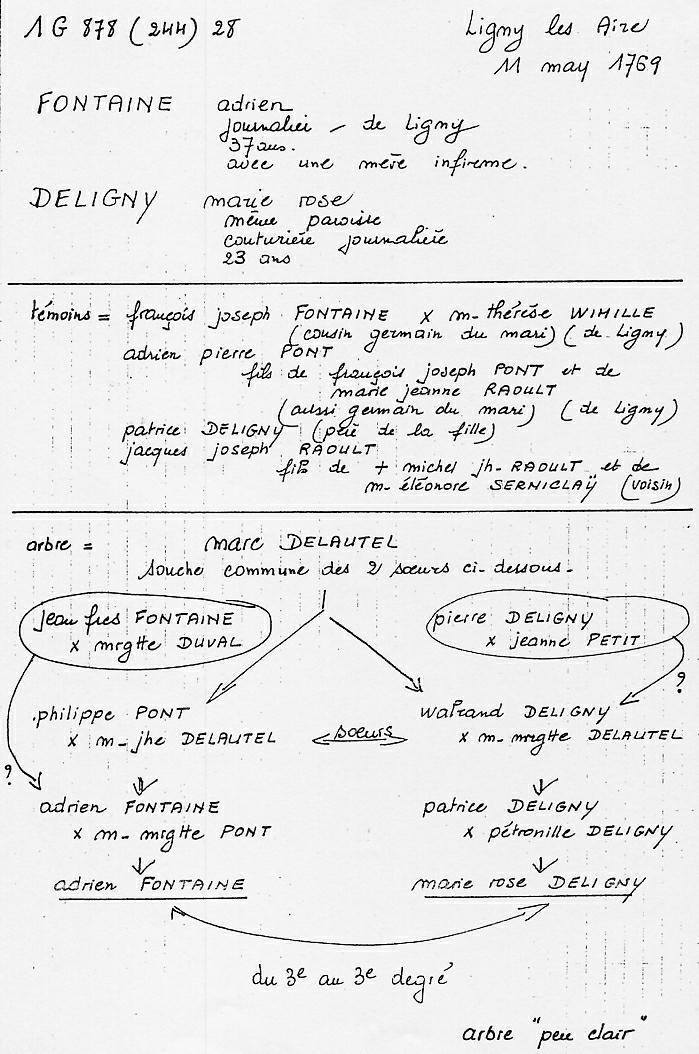 1 G 878 (244) 28
Ligny les Aire
11 may 1769
FONTAINE adrien
journalier - de Ligny
37 ans.
avec une mère infirme.
DELIGNY marie rose
même paroisse
couturière journalière
23 ans
témoins = françois joseph FONTAINE x m-thérèse WIHILLE
(cousin germain du mari) (de Ligny)
adrien pierre PONT
fils de françois joseph PONT et de
marie jeanne RAOULT
(aussi germain du mari) (de Ligny)
patrice DELIGNY (père de la fille)
jacques joseph RAOULT
fils de + michel jh- RAOULT et de
m- éléonore SERNICLAŸ (voisin)
arbre = marc DELAUTEL
souche commune des 2 sœurs ci-dessous.
jean fres FONTAINE
x mrgtte DUVAL
pierre DELIGNY
x jeanne PETIT
?
philippe PONT
x m-jhe DELAUTEL
sœurs
walrand DELIGNY
x m-mrgtte DELAUTEL
?
adrien FONTAINE
x m-mrgtte PONT
patrice DELIGNY
x pétronille DELIGNY
adrien FONTAINE
marie rose DELIGNY
du 3e au 3e degré
arbre "peu clair"